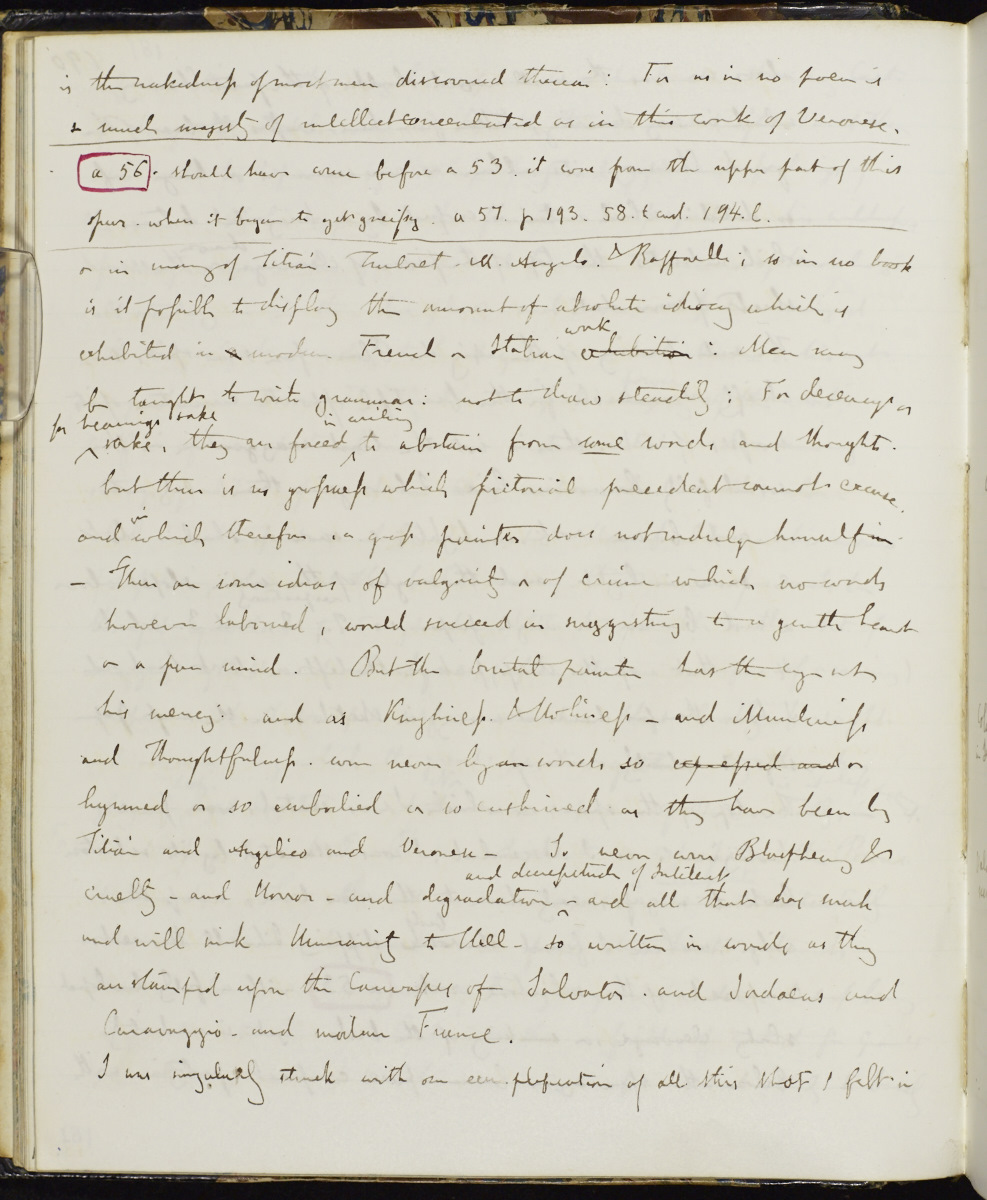 is the nakedness of most men discovered therein: For as in no poem is
so much majesty of intellect concentrated as in this work of Veronese.
a 56. should have come before a 53. it come from the upper part of this
spur. when it began to get gneissy. a 57. p 193. 58. t and. 194. l.
or in many of Titian. Tintoret. M. Angelo. & Raffaelle; so in no book
is it possible to display the amount of absolute idiocy which is
work
exhibited in a modern French or Italian exhibition: Men may
be taught to write grammar: not to draw steadily: For decencys or
for hearings sake in writing
sake, they are forced to abstain from some words and thoughts.
but there is no grossness which pictorial precedent cannot excuse.
and in which therefore a gross painter does not indulge himself in.
– There are some ideas of vulgarity or of crime which no words
however laboured, would succeed in suggesting to a gentle heart
or a pure mind. But the brutal painter has the eyes at
his mercy: and as Kingliness. & Holiness – and Manliness
and Thoughtfulness. were never by words so expressed and or
hymned or so embodied or so enshrined as they have been by
Titian and Angelico and Veronese – So never were Blasphemy &
and decrepitude of Intellect
cruelty – and Horror – and degradation – and all that has sunk
and will sink Humanity to Hell – so written in words as they
are stamped upon the Canvasses of Salvator. and Jordaens and
Caravaggio – and modern France.
I was singularly struck with an exemplification of all this that I felt in